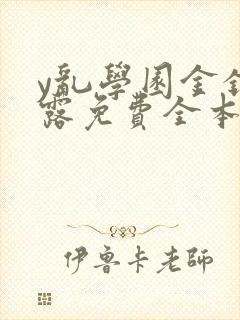 y亂學園金銀
露免費全本
伊魯卡老師